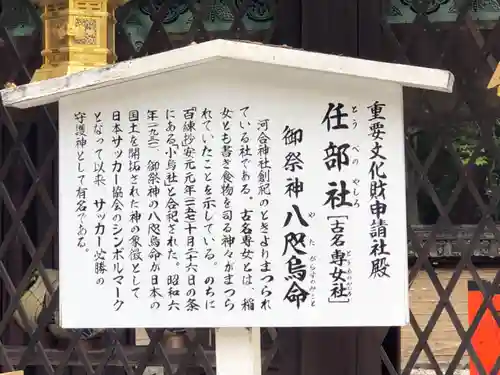 重要文化財申請社殿
とうべのやしろ
任部社[古名専女社]
やたがらすのみこと
御祭神 八咫烏命
河合神社創祀のときよりまつられ
ている社である。古名専女社とは、稲
女とも書き食物を司る神々がまつら
れていたことを示している。のちに
百練抄安元元年 十月二十六日の条
にある小烏社と合祀された。昭和六
年(一九三一)、御祭神の八咫烏命が日本の
国土を開拓された神の象徴として
日本サッカー協会のシンボルマーク
となって以来、サッカー必勝の
守護神として有名である。